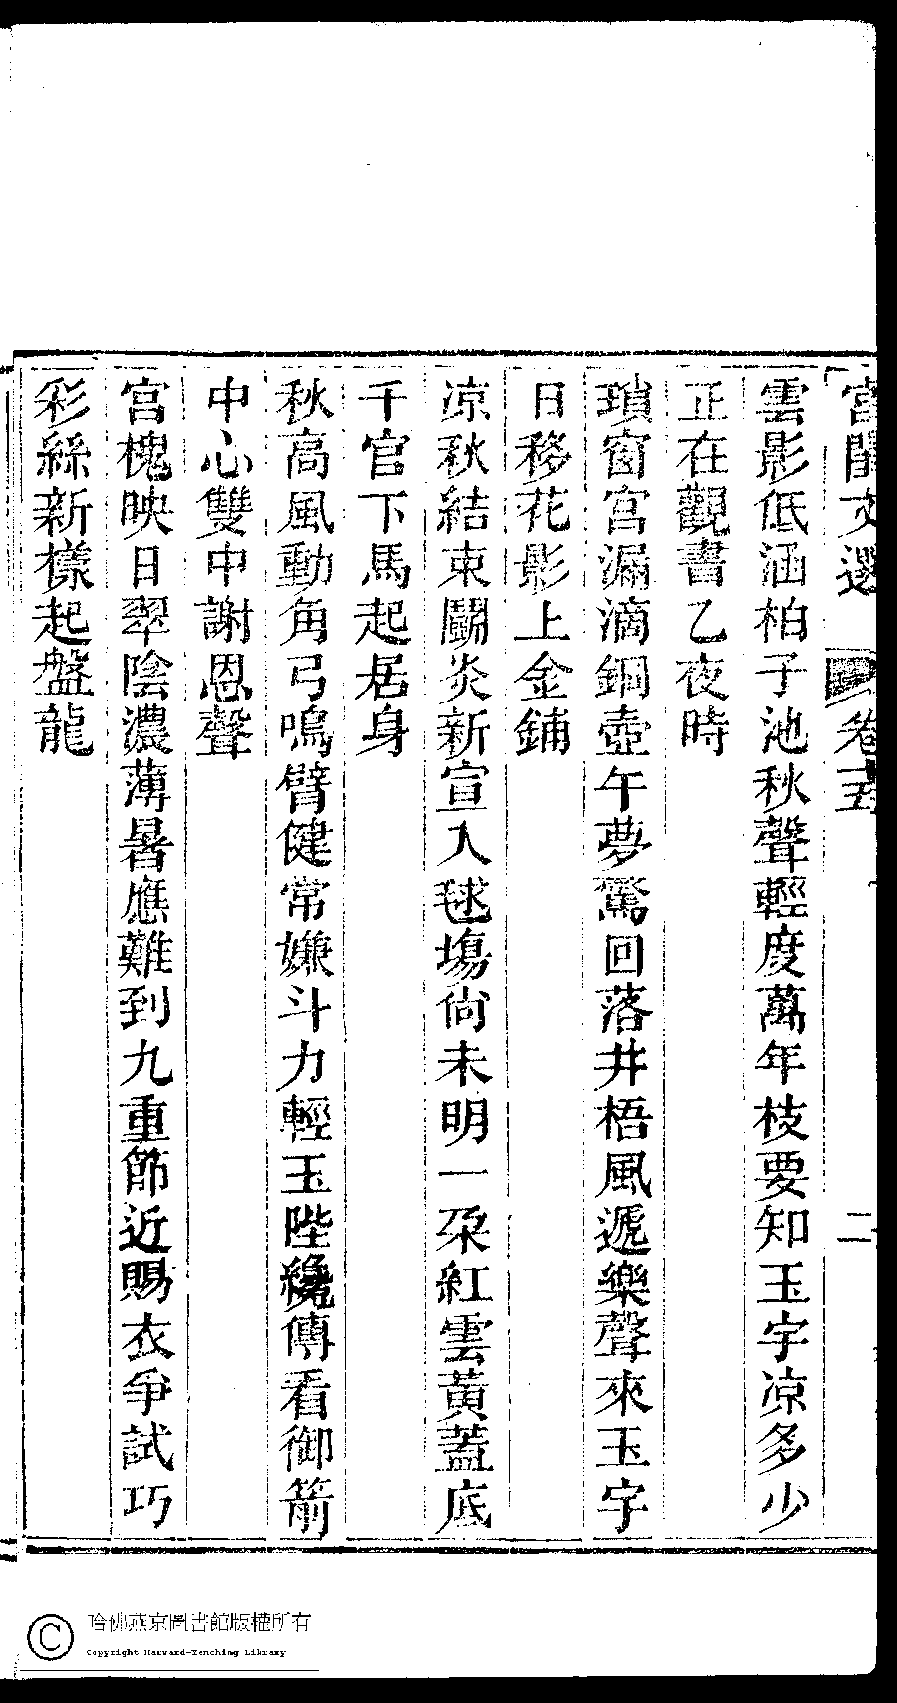 宮閨文選 卷十五 二
雲影低涵柏子池秋聲輕度萬年枝要知玉宇凉多少
正在觀書乙夜時
瑣窗宮漏滴銅壺午夢驚回落井梧風遞樂聲來玉宇
日移花影上金鋪
凉秋結束鬭炎新宣入毬塲尙未明一朶紅雲黃蓋底
千官下馬起居身
秋高風動角弓鳴臂健常嫌斗力輕玉陛纔傳看御箭
中心雙中謝恩聲
宮槐映日翠陰濃薄暑應難到九重節近賜衣爭試巧
彩絲新樣起盤龍
哈佛燕京圖書館版權所有
Copyright Harvard-Yenching Library